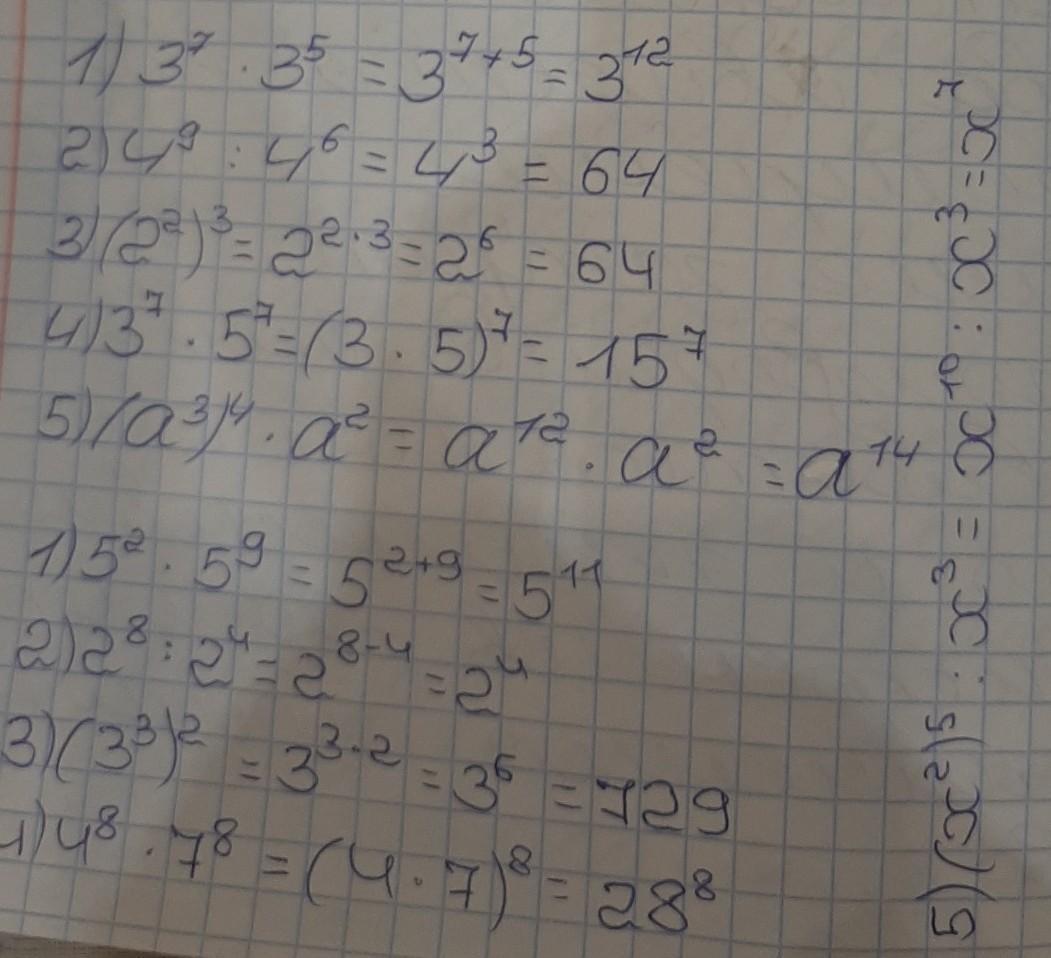 1) 3⁷ · 3⁵ = 3⁷⁺⁵ = 3¹²
2) 4⁹ : 4⁶ = 4³ = 64
3) (2²)³ = 2²˙³ = 2⁶ = 64
4) 3⁷ · 5⁷ = (3 · 5)⁷ = 15⁷
5) (a³)⁴ · a² = a¹² · a² = a¹⁴
1) 5² · 5⁹ = 5²⁺⁹ = 5¹¹
2) 2⁸ : 2⁴ = 2⁸⁻⁴ = 2⁴
3) (3³)² = 3³˙² = 3⁶ = 729
4) 4⁸ · 7⁸ = (4 · 7)⁸ = 28⁸
5) (x²)⁵ : x³ = x¹⁰ : x³ = x⁷